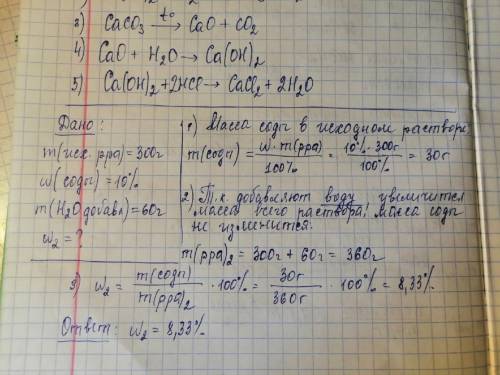 3) CaCO₃ —t°→ CaO + CO₂
4) CaO + H₂O → Ca(OH)₂
5) Ca(OH)₂ + 2HCl → CaCl₂ + 2H₂O
Дано:
m(исх. рра) = 300г
w(соды) = 10%
m(H₂O добавл) = 60г
w₂ = ?
1) Масса соды в исходном растворе:
m(соды) = w · m(рра) / 100% = 10% · 300г / 100% = 30г
2) Т.к. добавляют воду увеличится
масса всего раствора! Масса соды
не изменится.
m(рра)₂ = 300г + 60г = 360г
3) w₂ = m(соды) / m(рра)₂ · 100% = 30г / 360г · 100% = 8,33%
Ответ: w₂ = 8,33%